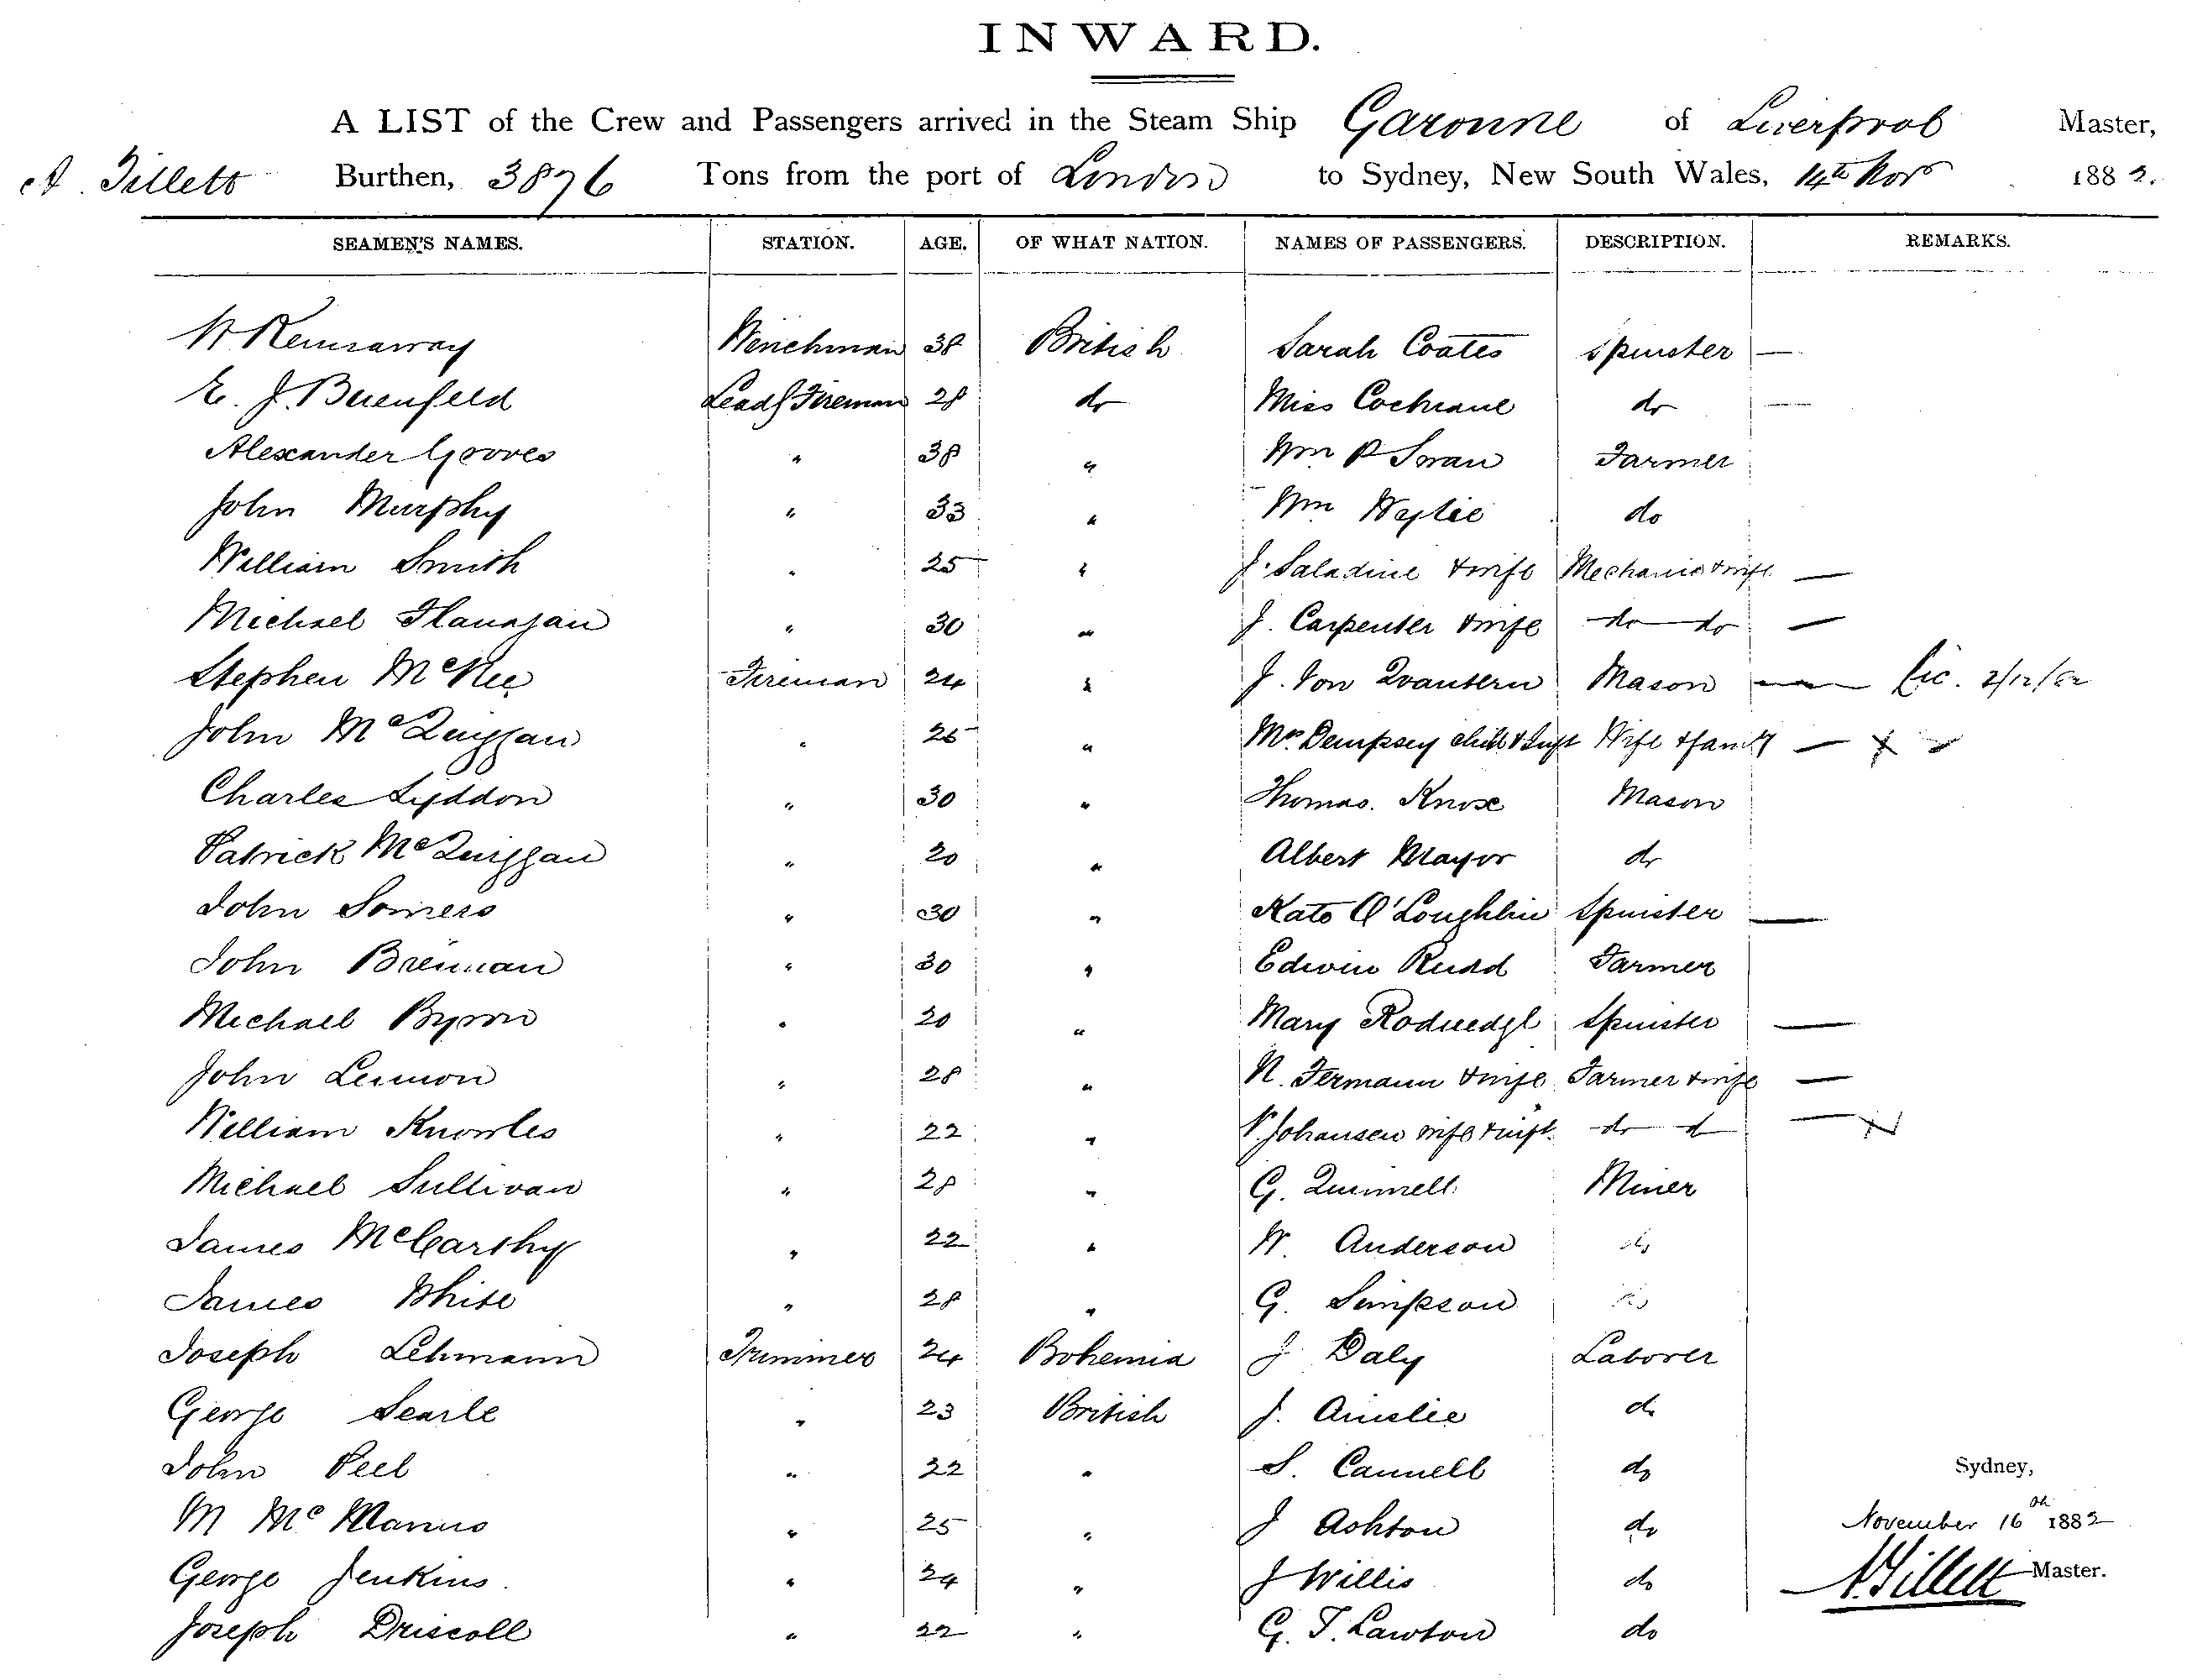 INWARD.
A LIST of the Crew and Passengers arrived in the Steam Ship Garonne of Liverpool Master,
A Tillett Burthen, 3876 Tons from the port of London to Sydney, New South Wales, 14th Novr 1882.
SEAMEN'S NAMES. STATION. AGE. OF WHAT NATION. NAMES OF PASSENGERS. DESCRIPTION. REMARKS.
Winchman 38 British Sarah Coates Spinster —
E. J. Leadg Fireman 28 do Miss Cochrane do —
Alexander Groves " 38 " Wm P Swan Farmer
John Murphy " 33 " Wm Wylie do
William Smith " 25 " J. Saladine & wife Mechanic & wife —
Michael Flanagan " 30 " J. Carpenter & wife do do —
Stephen McKee Fireman 24 " J. Von Mason — 2/12/82
John McQuiggan " 25 " Mrs Dempsey child & Inft Wife & family — x
Charles Lyddon " 30 " Thomas. Knox Mason
Patrick McQuiggan " 20 " Albert Mayor do
John Somers " 30 " Kate O'Loughlin Spinster —
John Brennan " 30 " Edwin Rudd Farmer
Michael Byron " 20 " Mary Spinster —
John Lennon " 28 " N. Fermann & wife Farmer & wife —
William Knowles " 22 " Johansen wife & inft. do do —
Michael Sullivan " 28 " G. Quinnell Miner
James McCarthy " 22 " W. Anderson do
James White " 28 " G. Simpson do
Joseph Lehmann Trimmer 24 Bohemia J Daly Laborer
George Searle " 23 British J. Ainslie do
John Peel " 22 " S. Cannell do Sydney,
M McManus " 25 " J Ashton do November 16th 1882
George Jenkins " 24 " J Willis do A Tillett Master.
Joseph Driscoll " 22 " G. T. Lawton do